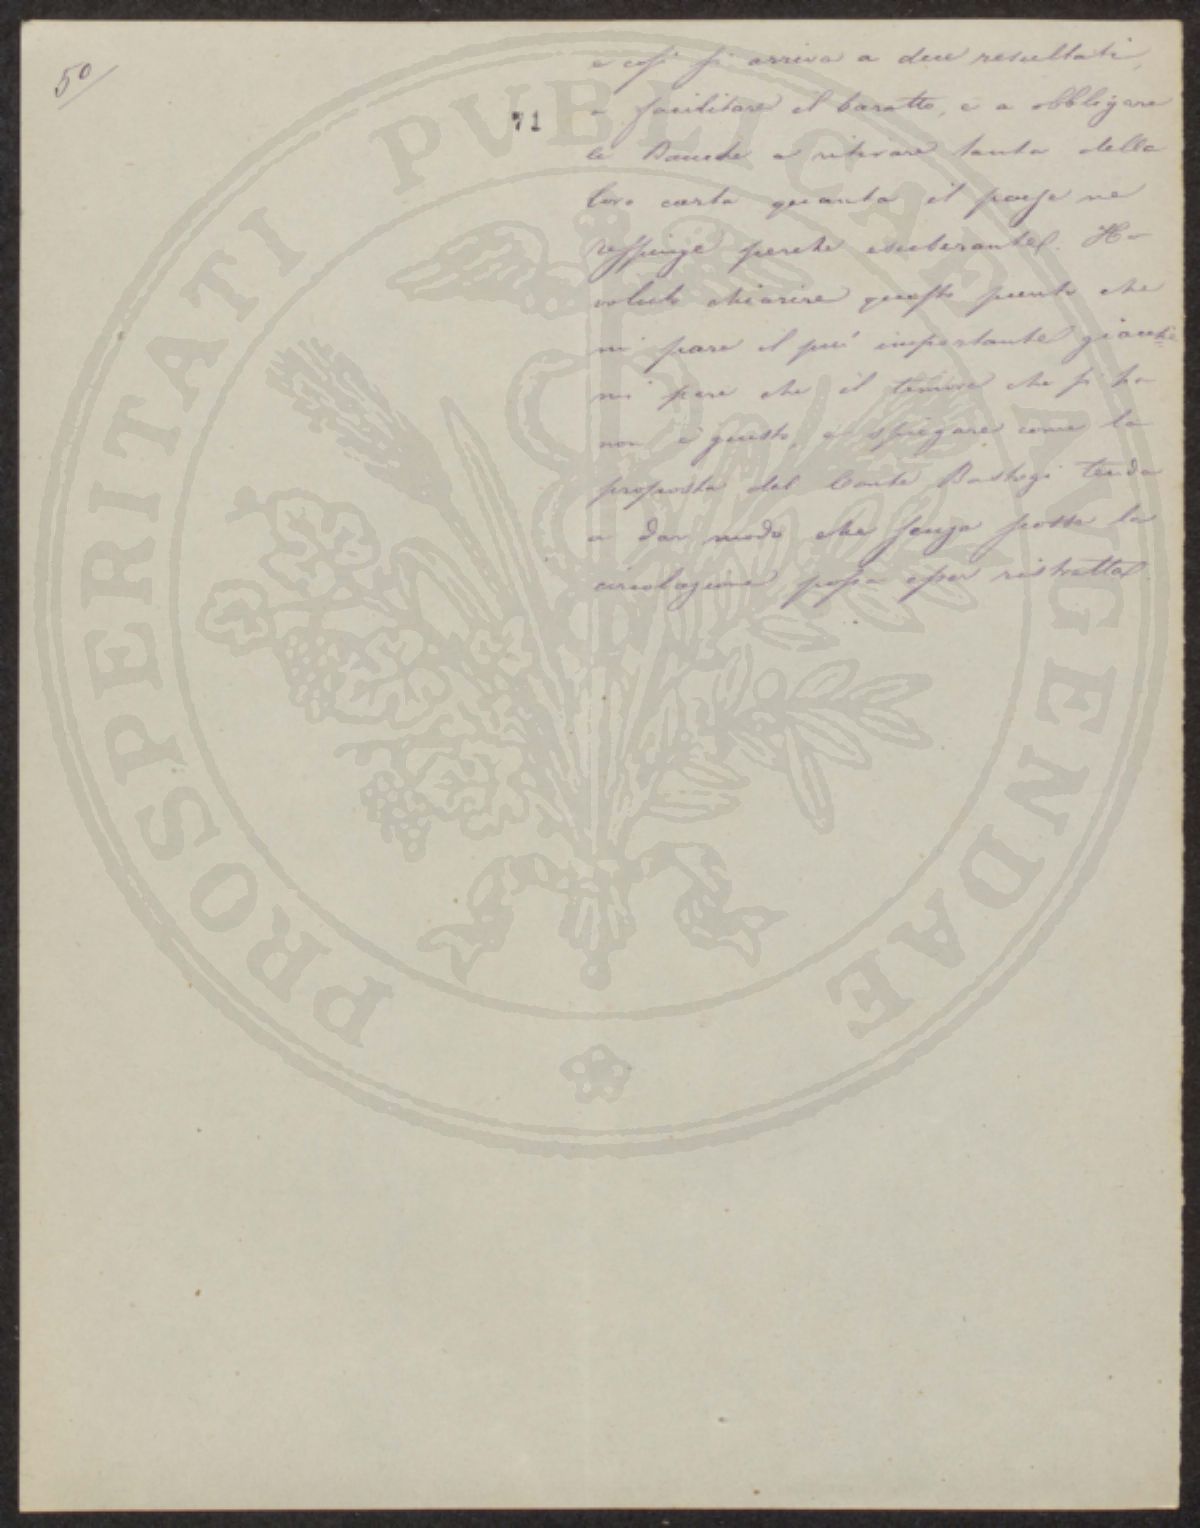 50/
71
e così si arriva a due resultati,
a facilitare il baratto, e a obbligare
le Banche a ritirare tanta della
loro carta quanta il paese ne
respinge perché esuberante. Ho
voluto chiarire questo punto che
mi pare il più importante giacchè
mi pare che il timore che si ha
non è giusto, e spiegare come la
proposta del Conte Bastogi tenda
a dar modo che senza scosse la
circolazione possa esser ristretta.
PROSPERITATI PVBLICAE AVGENDAE